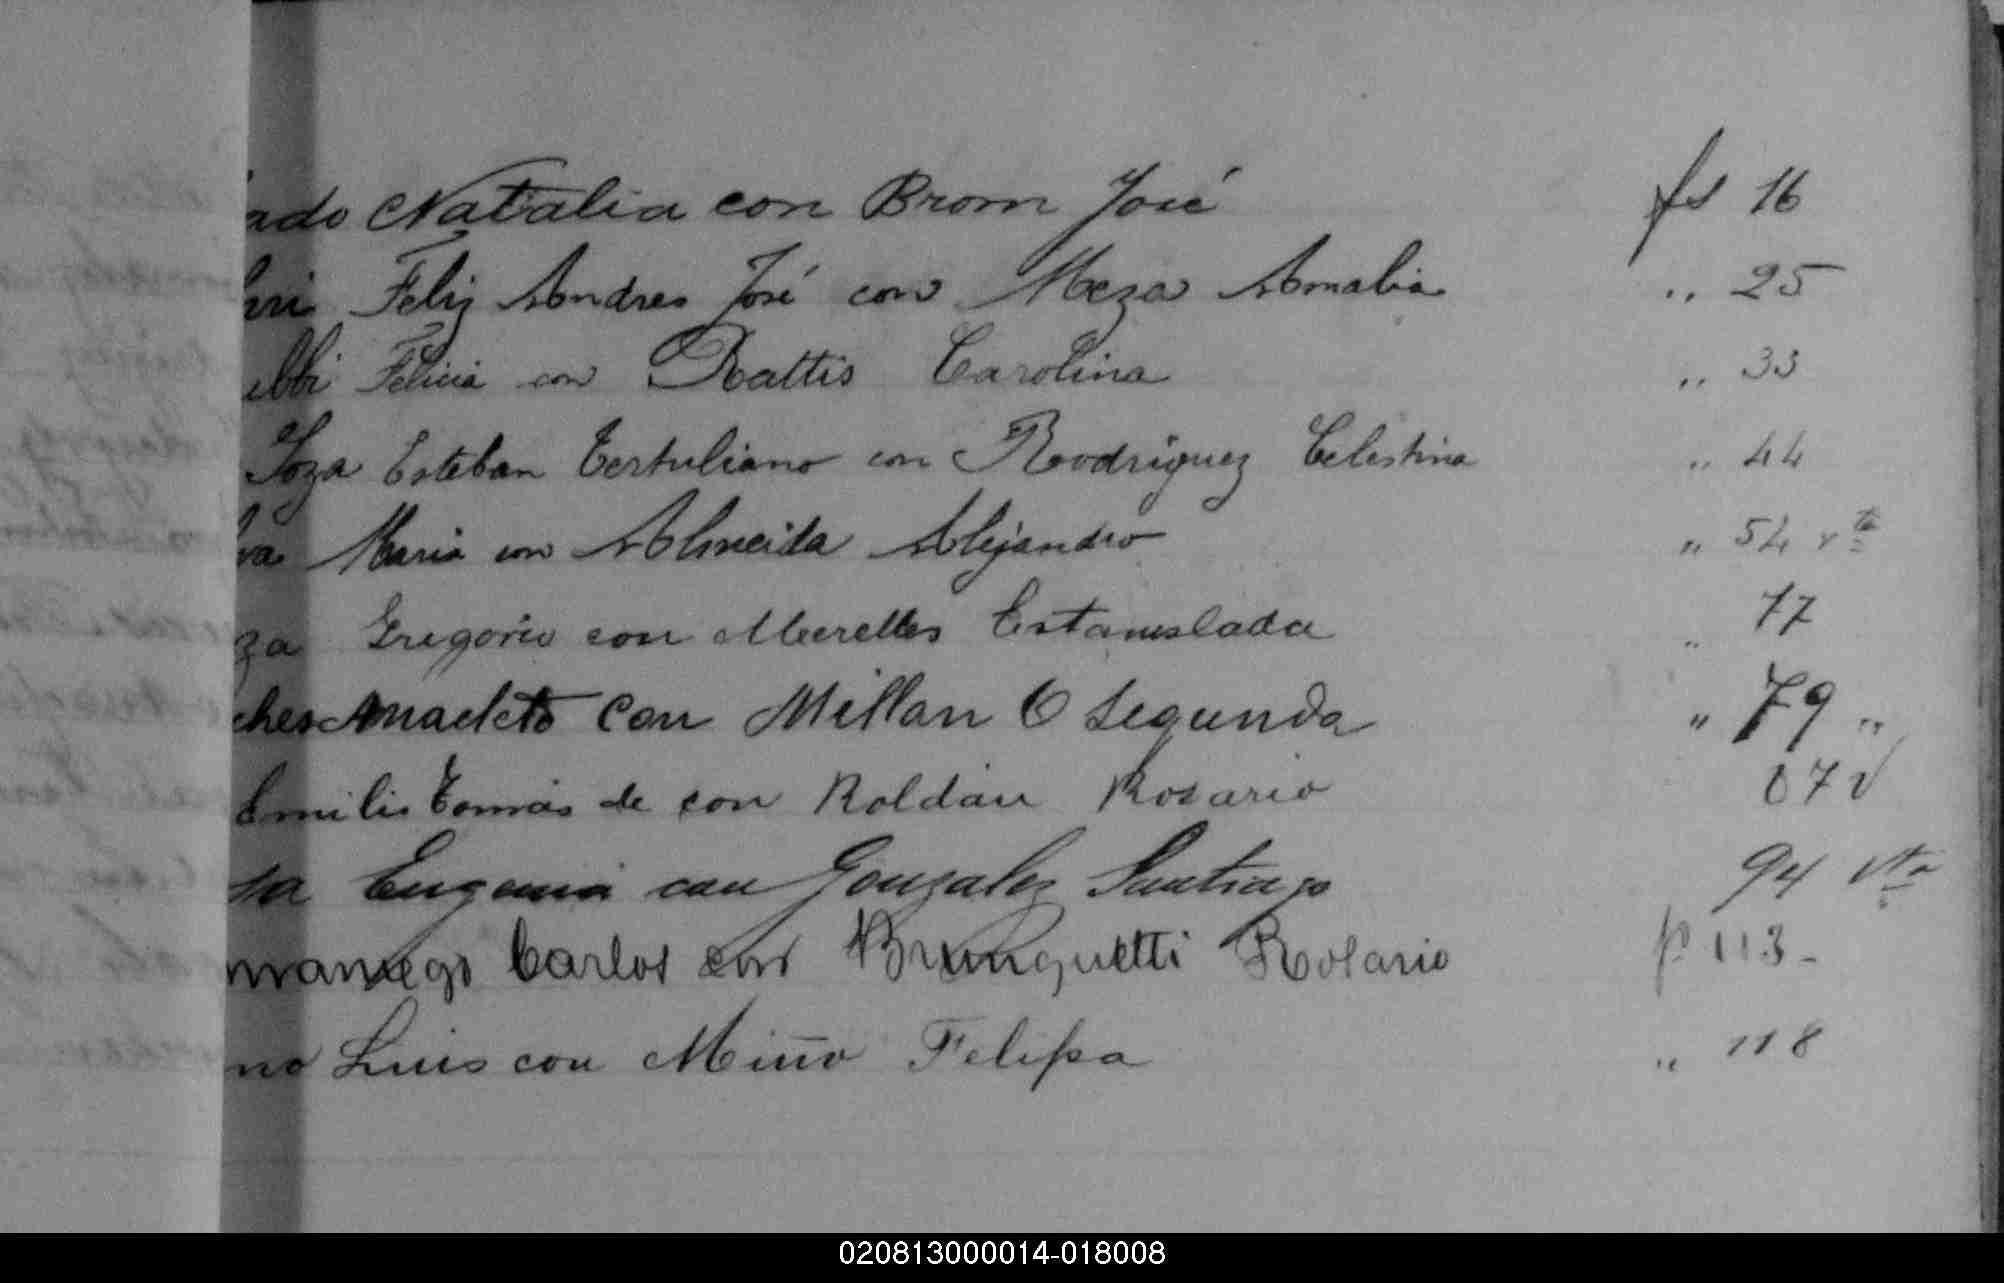 ado Natalia con Brom José fs 16
Feliz Andres José con Meza Amalia " 25
ebbi Felicia con Rattis Carolina " 33
Soza Esteban Tertuliano con Rodriguez Celestina " 44
va Maria con Almeida Alejandro " 54 vta
za Gregorio con Mereles Estanislada " 77
ches Anacleto con Millan O Segunda " 79 "
Emilio Tomás de con Roldán Rosario 87 v
sa Eugenia con Gonzalez Santiago 94 vta
Carlos con Brunquetti Rosario f. 113 -
no Luis con Miño Felipa " 118
020813000014-018008